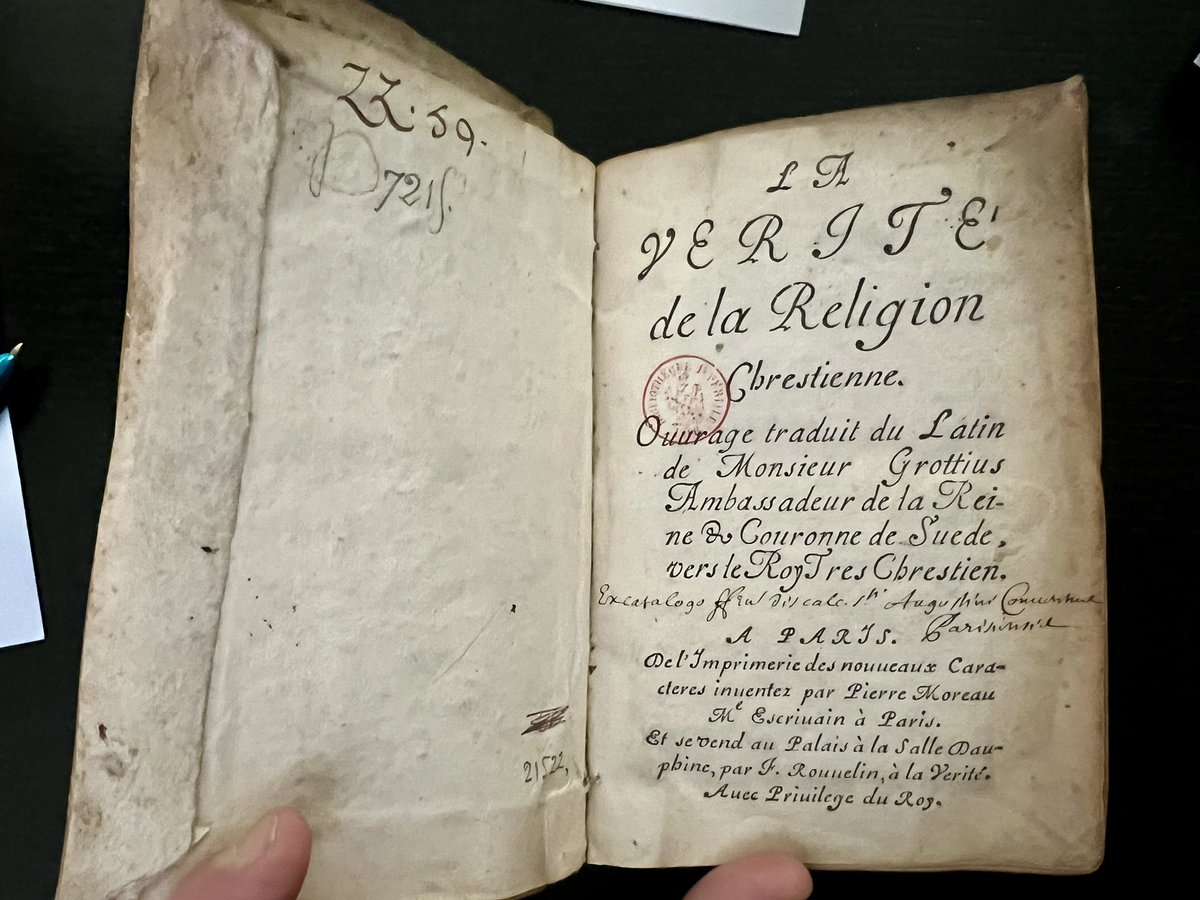 ZZ. 59.
D 7215.
21522,
LA
VERITÉ
de la Religion
Chrestienne.
BIBLIOTHÈQUE IMPÉRIALE
Ouurage traduit du Latin
de Monsieur Grottius
Ambassadeur de la Rei-
ne & Couronne de Suede,
vers le Roy Tres Chrestien.
Ex catalogo discalc. Sti Augustini Conuentus
Parisiensis
A PARIS.
De l'Imprimerie des nouueaux Cara-
cteres inuentez par Pierre Moreau
Me Escriuain à Paris.
Et se vend au Palais à la Salle Dau-
phine, par F. Rouuelin, à la Verité.
Auec Priuilege du Roy.